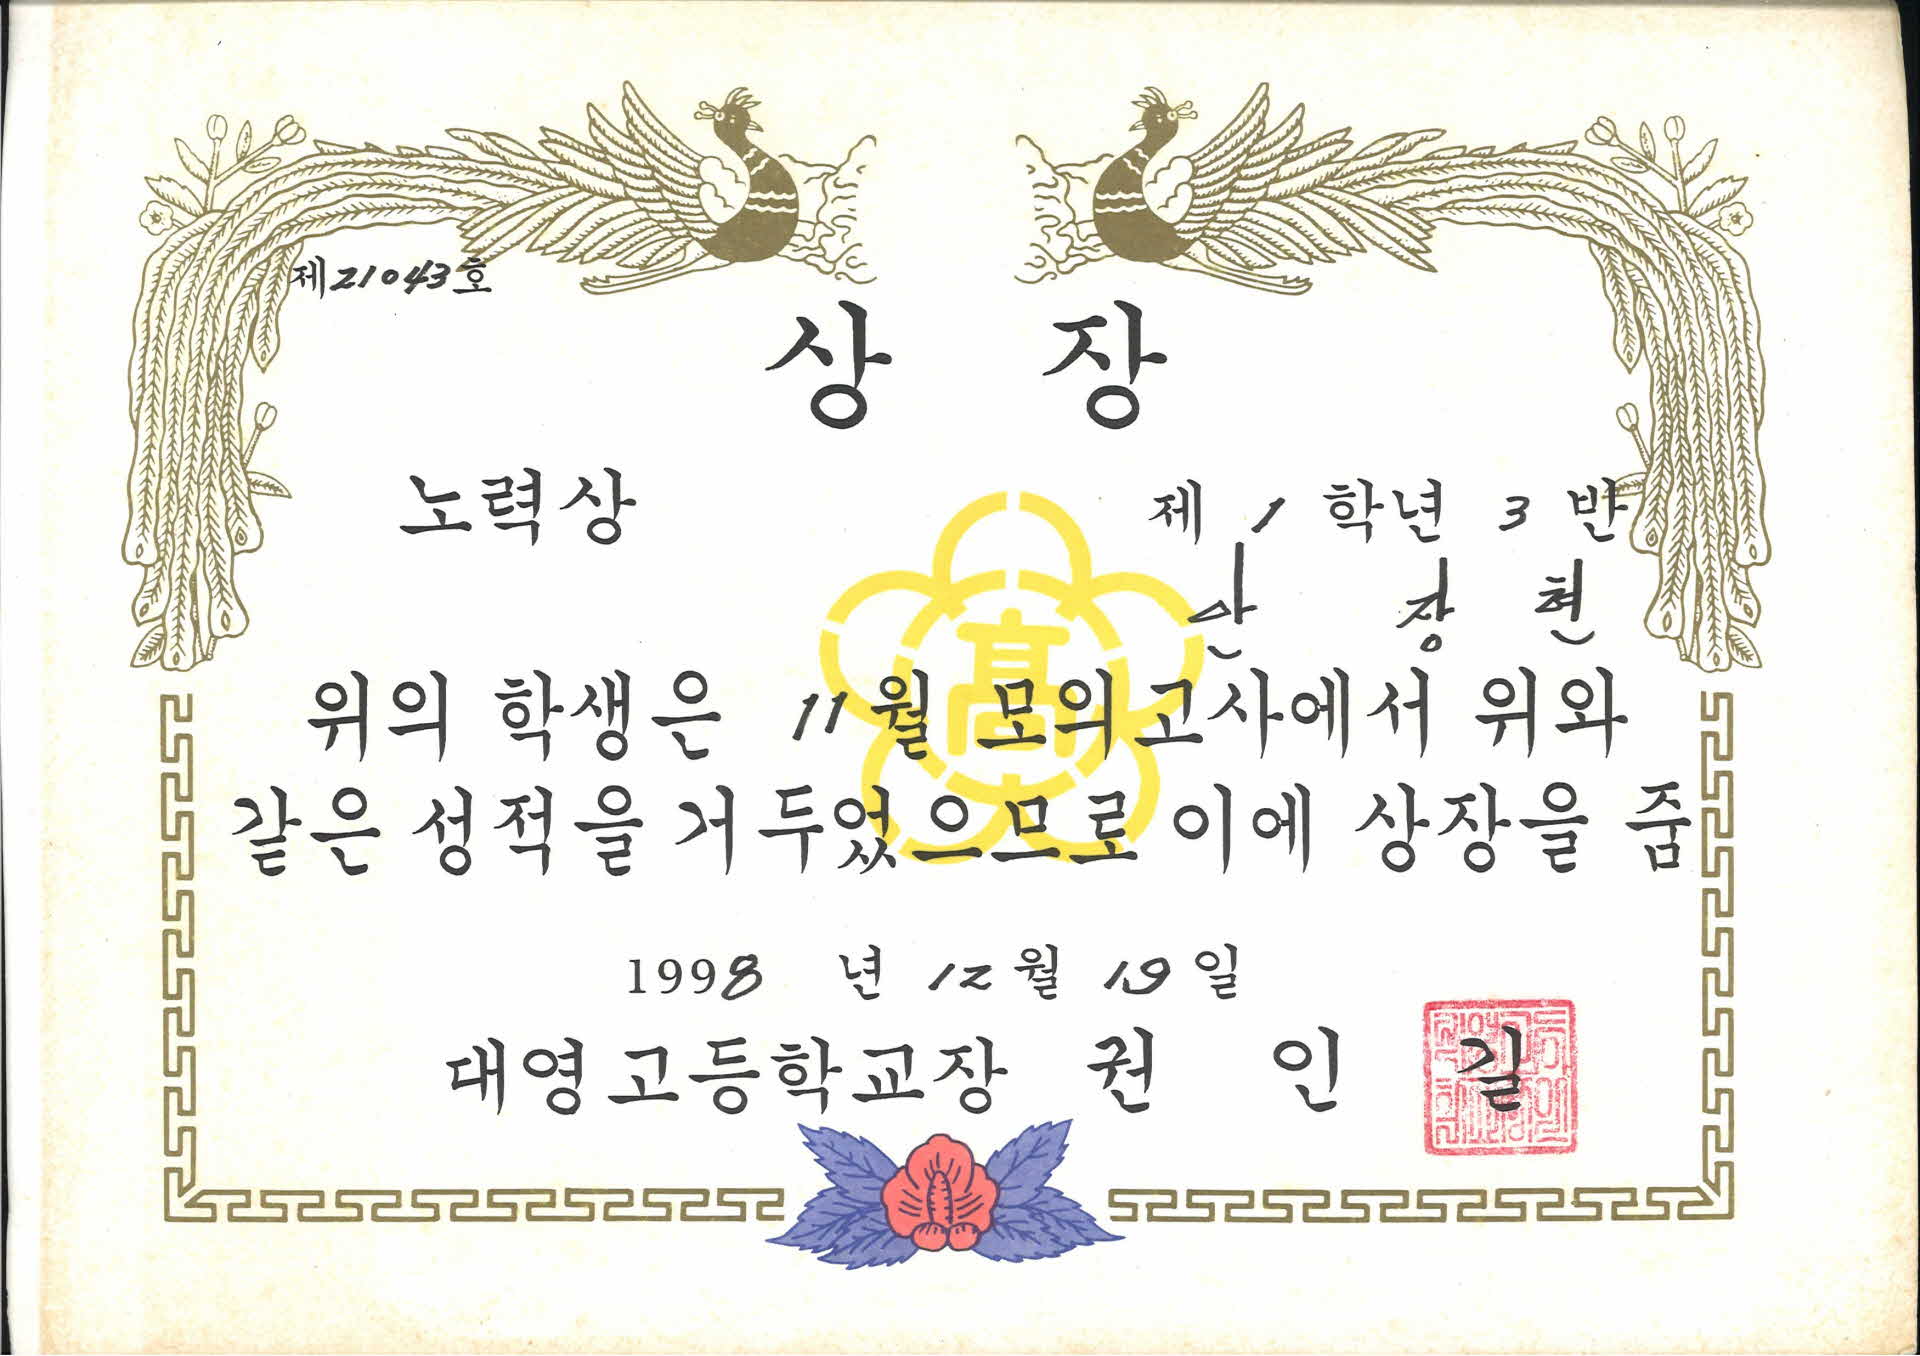 제21043호
상 장
노력상
제 1 학년 3 반
안 장 현
高
위의 학생은 11월 모의고사에서 위와
같은 성적을 거두었으므로 이에 상장을 줌
1998 년 12월 19일
대영고등학교장 권 인 길